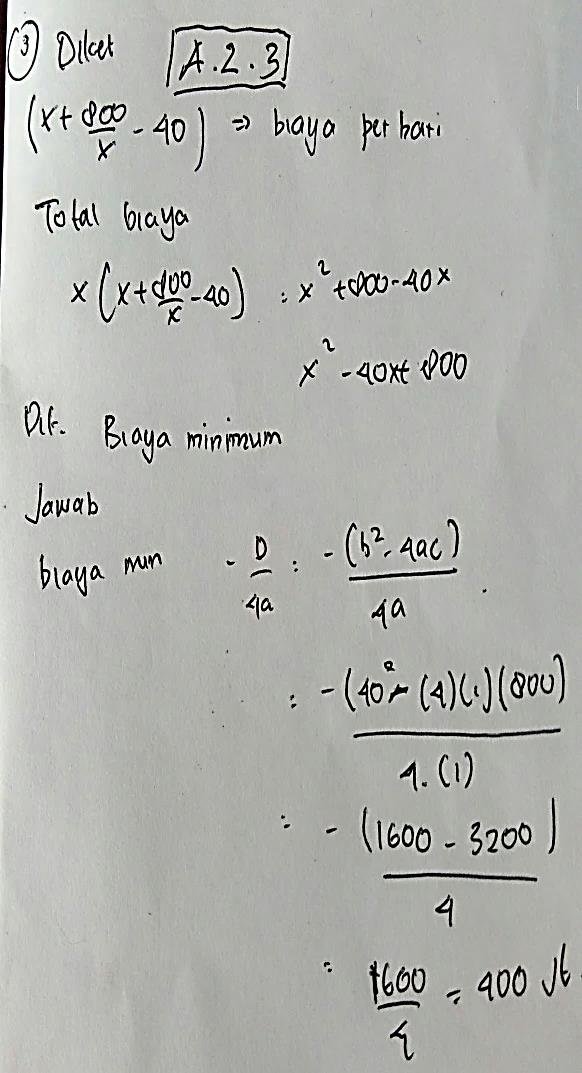 ③ Diket A.2.3
(x + 800/x - 40) ⇒ biaya per hari
Total biaya
x (x + 800/x - 40) : x² + 800 - 40x
x² - 40x + 800
Dit. Biaya minimum
Jawab
biaya min - D/4a : - (b² - 4ac)/4a
: - (40² - (4)(1)(800))/4.(1)
: - (1600 - 3200)/4
: 1600/4 = 400 Jt